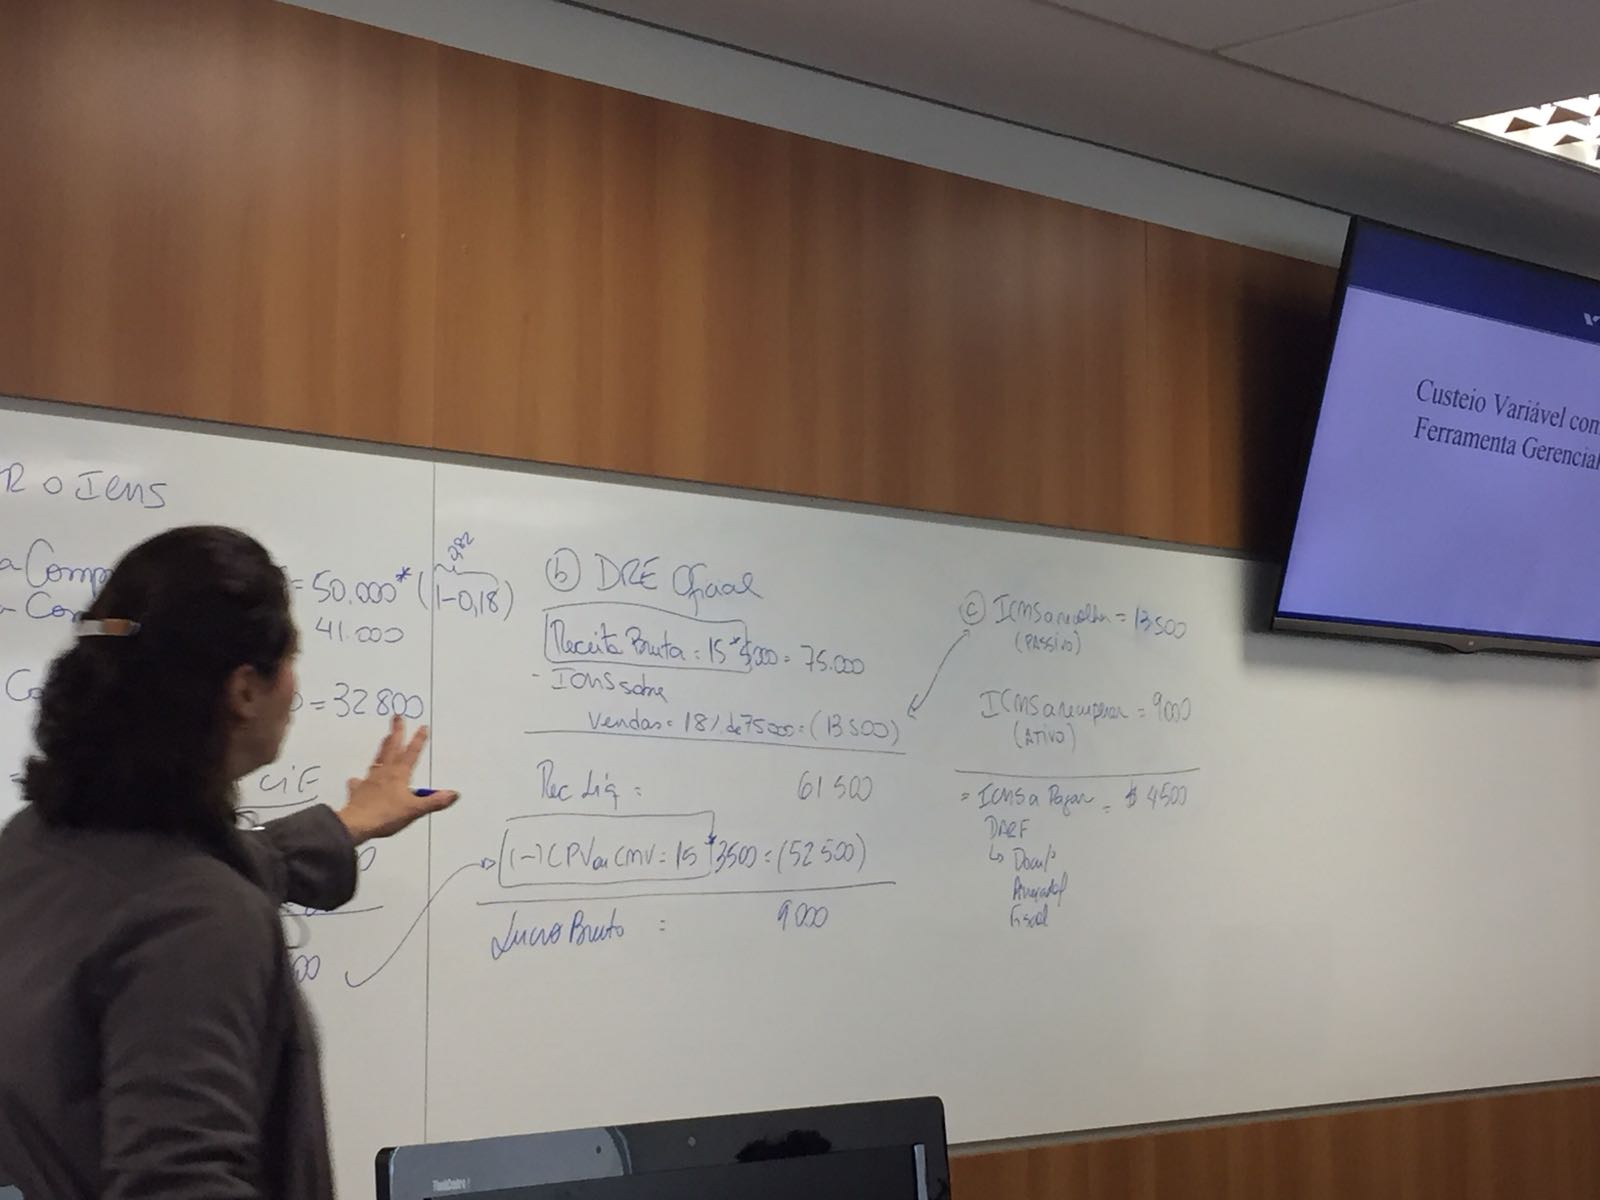 R O ICMS
a Comp
= 50.000* (1-0,18)
0,82
41.000
Co
= 32 800
CIF
00
b DRE Oficial
Receita Bruta = 15*5000 = 75.000
- ICMS sobre
vendas = 18% de 75000 = (13 500)
Rec Líq = 61 500
(-) CPV ou CMV = 15*3500 = (52 500)
Lucro Bruto = 9 000
c ICMS a recolher = 13 500
(PASSIVO)
ICMS a recuperar = 9000
(ATIVO)
= ICMS a Pagar = $ 4500
DARF
↳ Docum/
Fiscal
Custeio Variável com
Ferramenta Gerencial
ThinkCentre